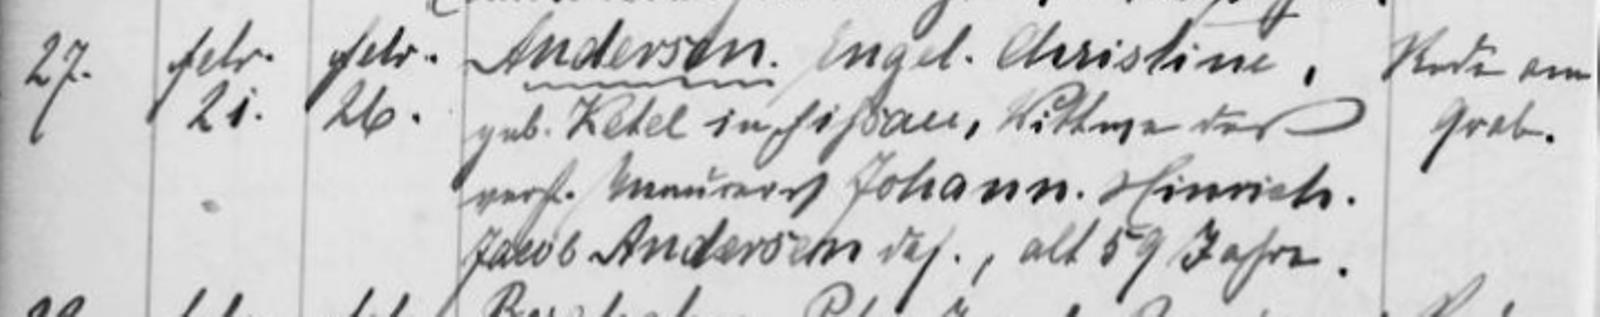 27. Febr. 21. Febr. 26. Andersen. Engel. Christine,
geb. Ketel in Fissau, Wittwe des
verst. Maurers Johann. Hinrich.
Jacob Andersen das., alt 59 Jahre.
Rede am
Grab.